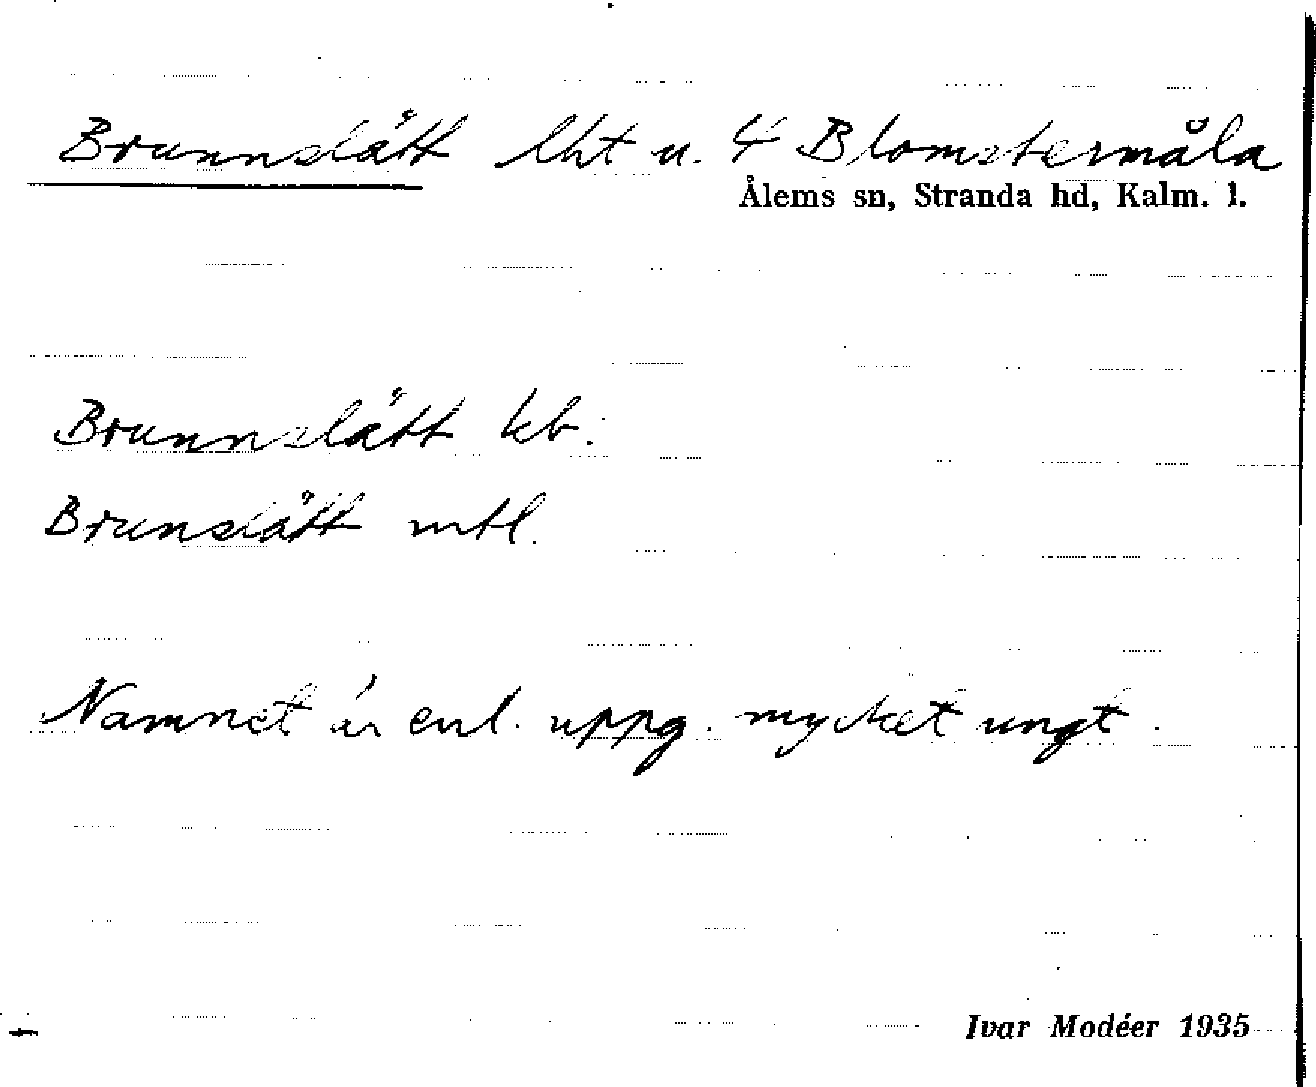 Brunnslätt lht u. 4 Blomstermåla
Ålems sn, Stranda hd, Kalm. l.
Brunnslätt kb.
Brunslätt mtl.
Namnet är enl. uppg. mycket ungt.
Ivar Modéer 1935